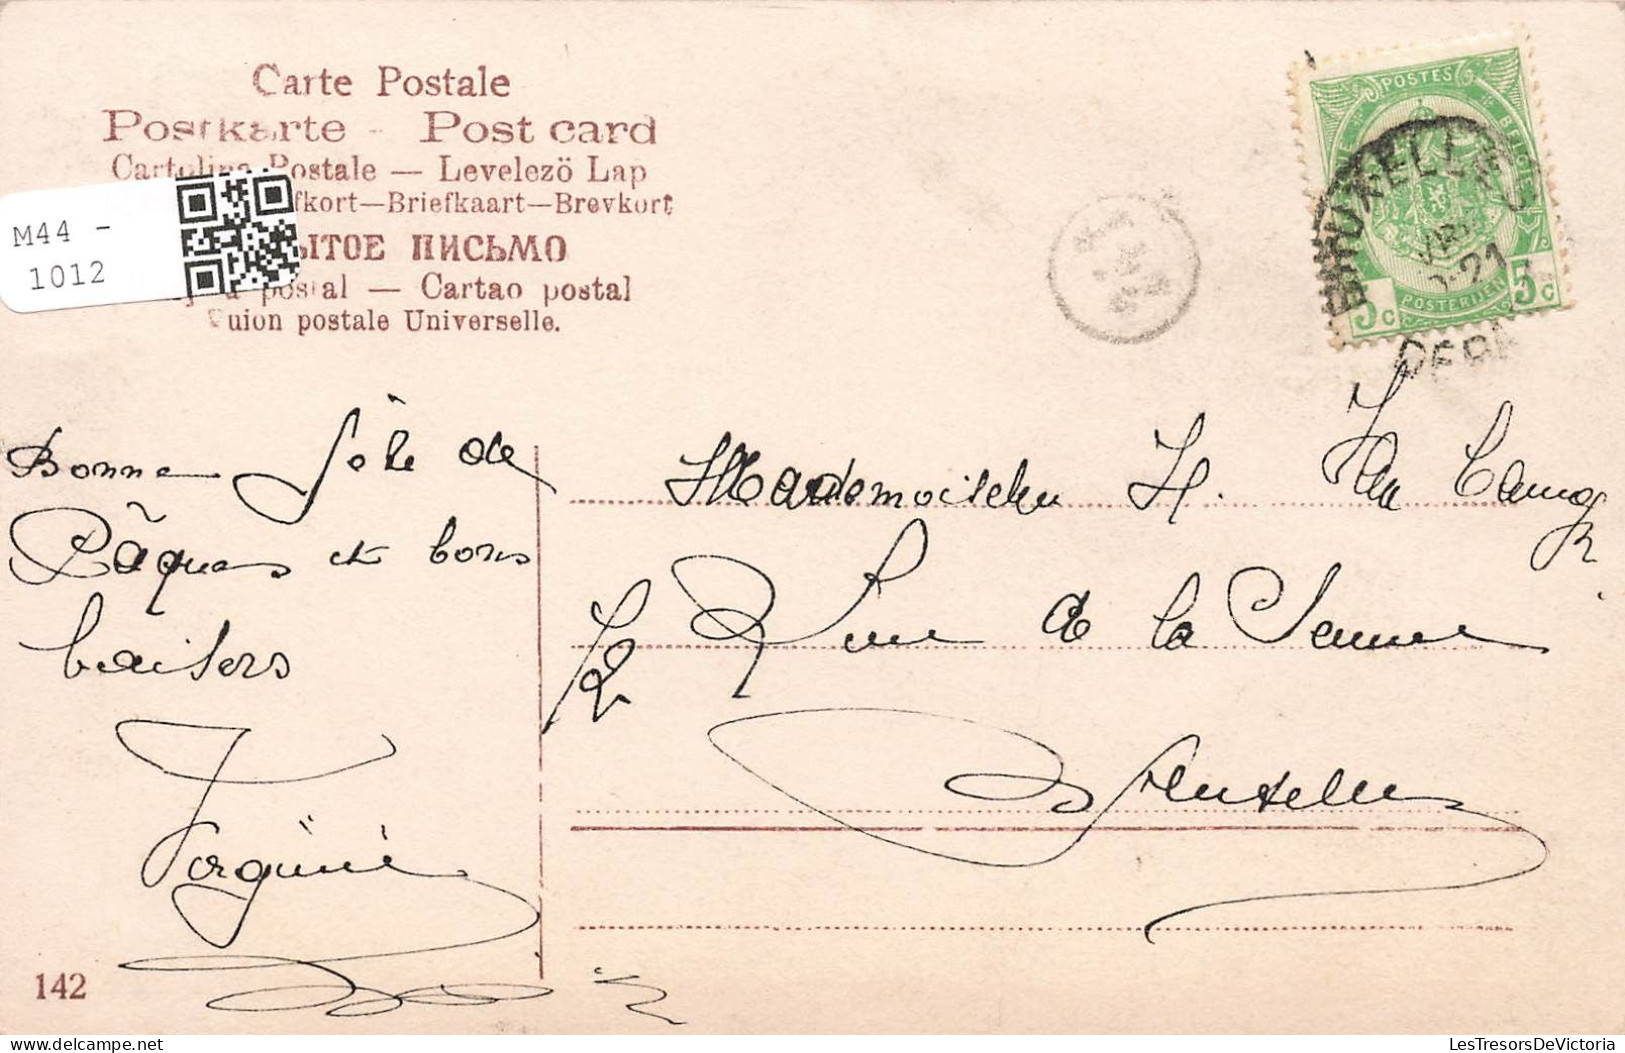 Carte Postale
Postkarte - Post card
Cartolina Postale — Levelező Lap
fkort—Briefkaart—Brevkort
ЫТОЕ ПИСЬМО
postal — Cartao postal
uion postale Universelle.
M44 -
1012
POSTES
BELGIQUE
POSTERIJEN
5c
5c
BRUXELLES
21
DEPA
Bonne fête de
Pâques et bons
baisers
Virginie
Mademoiselle H.
Rue de la Senne
Bruxelles
142
delcampe.net
LesTresorsDeVictoria